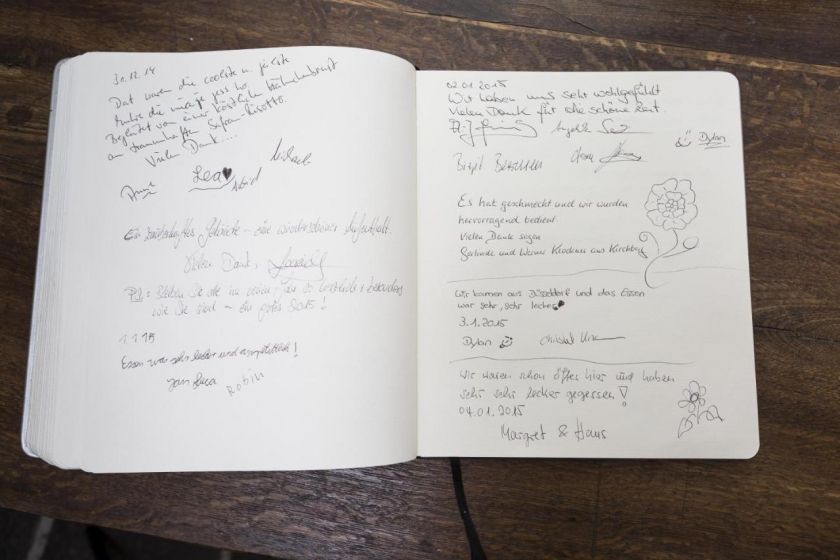 30.12.14
Dat waren die coolste u.
die
Begleitet von einer köstlich
an traumhaften Safran-Risotto.
Vielen Dank....
Lea
Astrid
Michaela
Ein zauberhaftes – eine wunderschöner Aufenthalt.
Vielen Dank,
P.S.: Bleiben Sie die im neuen Jahr so besonders
wie Sie sind – ein gutes 2015!
1.1.15
Essen war sehr lecker und empfehlich!
Jan Luca
Robin
02.01.2015
Wir haben uns sehr wohlgefühlt
Vielen Dank für die schöne Zeit.
Dylan
Birgit
Es hat geschmeckt und wir wurden
hervorragend bedient.
Vielen Dank sagen
Gerlinde und Werner aus
Wir kamen aus Düsseldorf und das Essen
war sehr, sehr lecker
3.1.2015
Dylan Christel
Wir waren schon öfters hier und haben
sehr sehr lecker gegessen!
04.01.2015
Margret & Hans